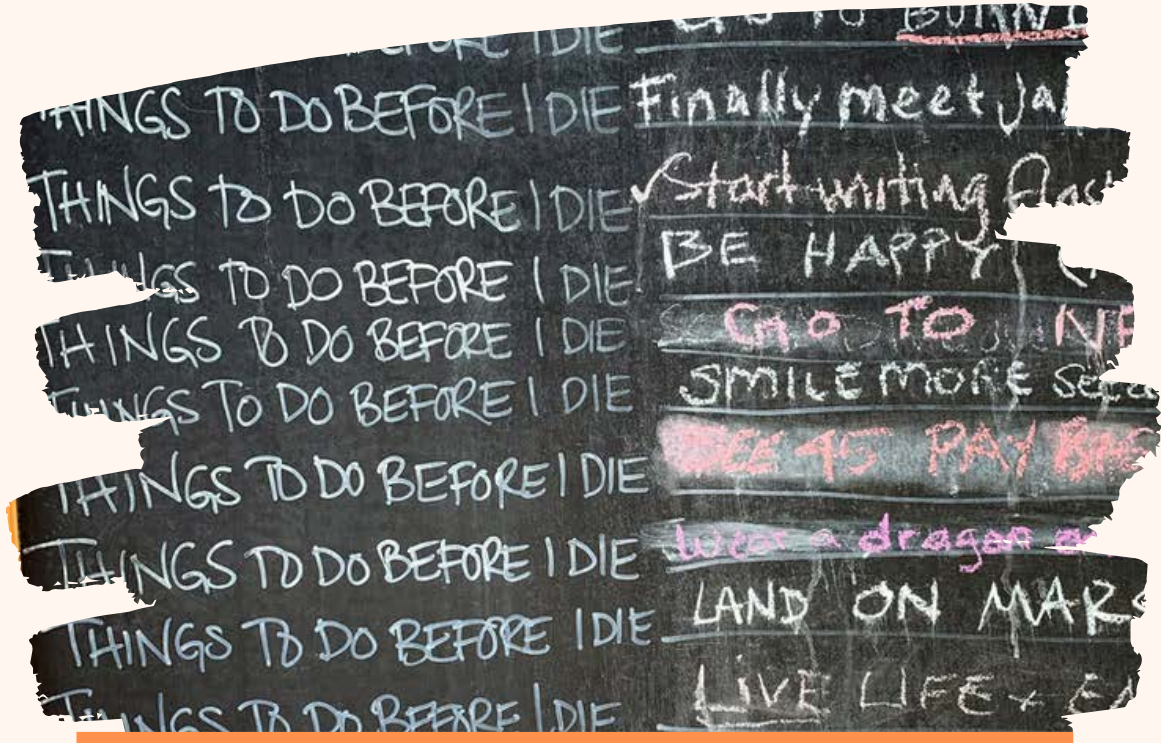 BEFORE I DIE GO TO BURNI
THINGS TO DO BEFORE I DIE Finally meet Ja
THINGS TO DO BEFORE I DIE ✓Start writing
THINGS TO DO BEFORE I DIE BE HAPPY
THINGS TO DO BEFORE I DIE GO TO
THINGS TO DO BEFORE I DIE SMILE MORE
THINGS TO DO BEFORE I DIE SEE 45 PAY
THINGS TO DO BEFORE I DIE Wear a dragon
THINGS TO DO BEFORE I DIE LAND ON MARS
THINGS TO DO BEFORE I DIE LIVE LIFE +